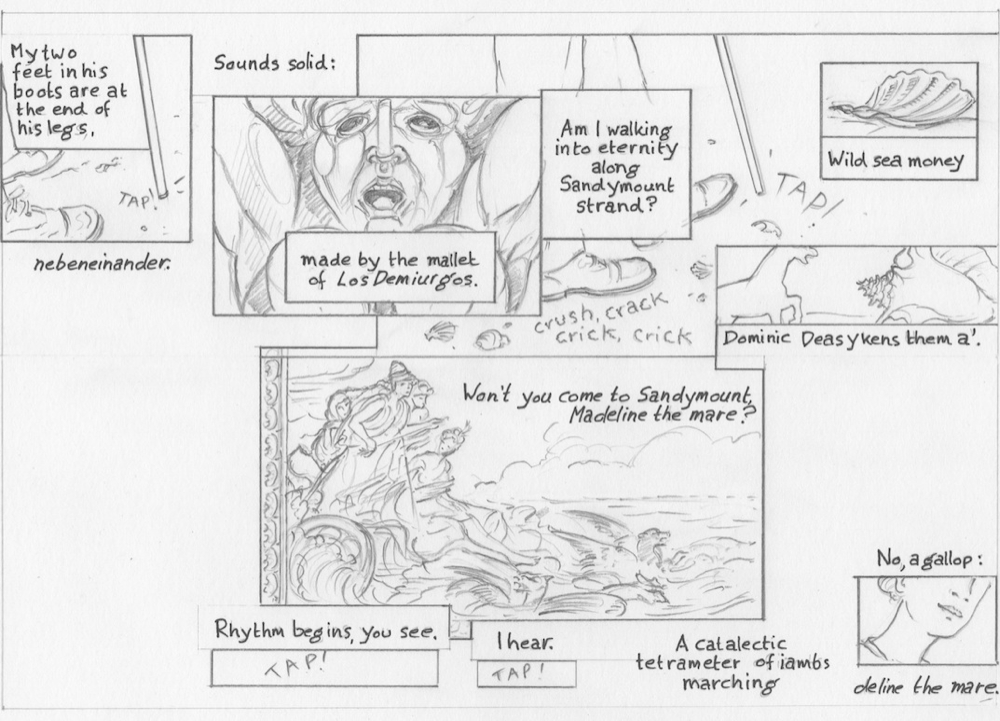 My two
feet in his
boots are at
the end of
his legs,
TAP!
nebeneinander.
Sounds solid:
made by the mallet
of Los Demiurgos.
Am I walking
into eternity
along
Sandymount
strand?
TAP!
crush, crack
crick, crick
Wild sea money
Dominic Deasy kens them a'.
Won't you come to Sandymount,
Madeline the mare?
Rhythm begins, you see.
TAP!
I hear.
TAP!
A catalectic
tetrameter of iambs
marching
No, a gallop:
deline the mare.